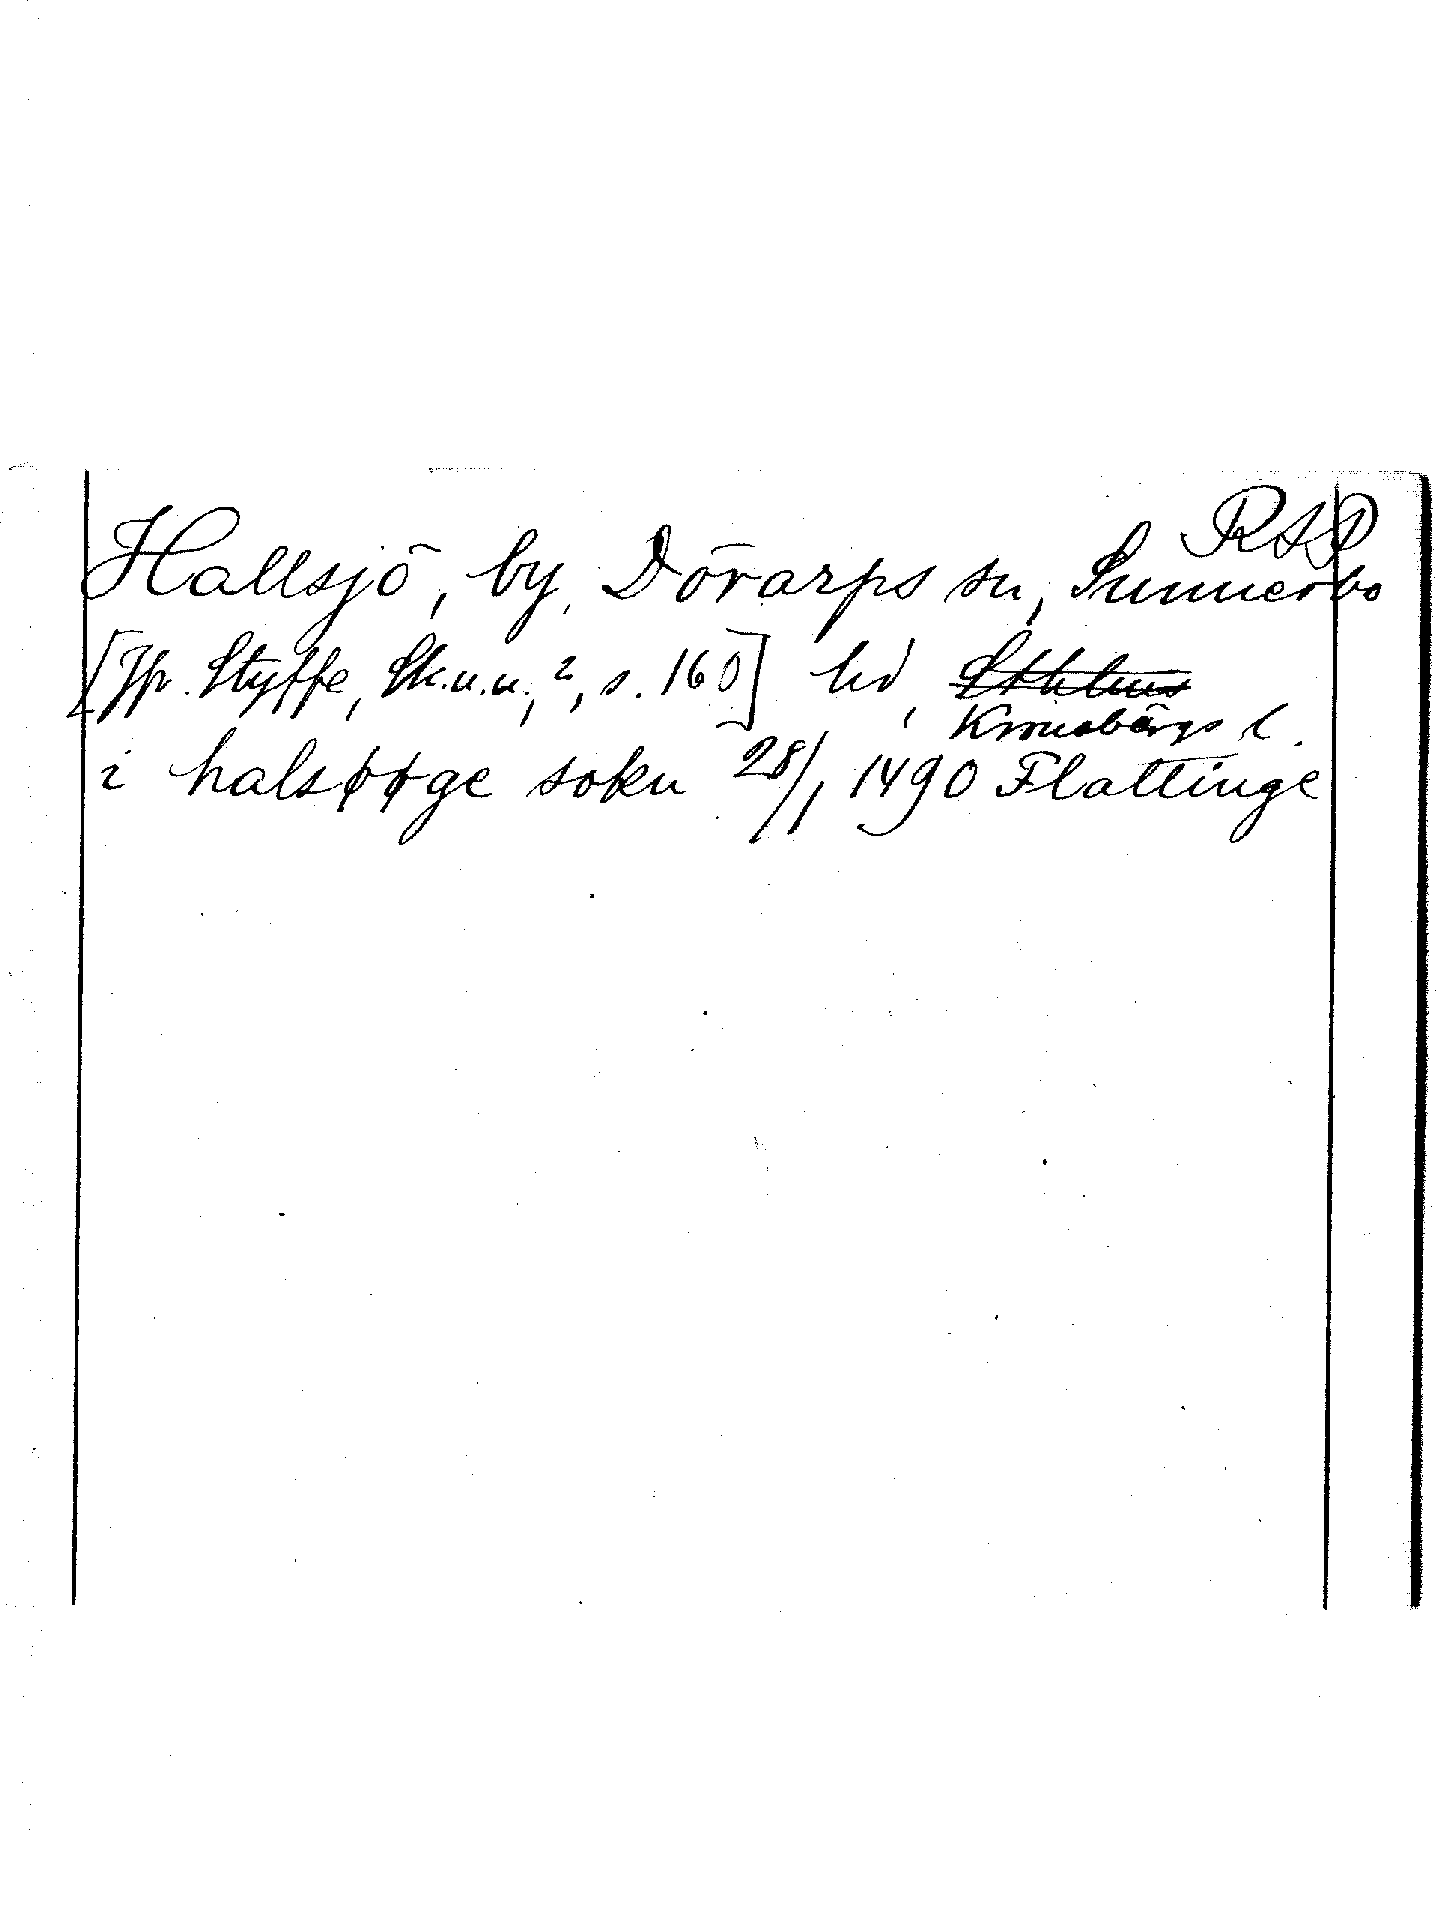 RAP
Hallsjö, by, Dörarps sn, Sunnerbo
[Jfr. Styffe, Sk.u.u., 2, s. 160] hd,
Kronobergs l.
i halsøøge sokn 28/1 1490 Flattinge